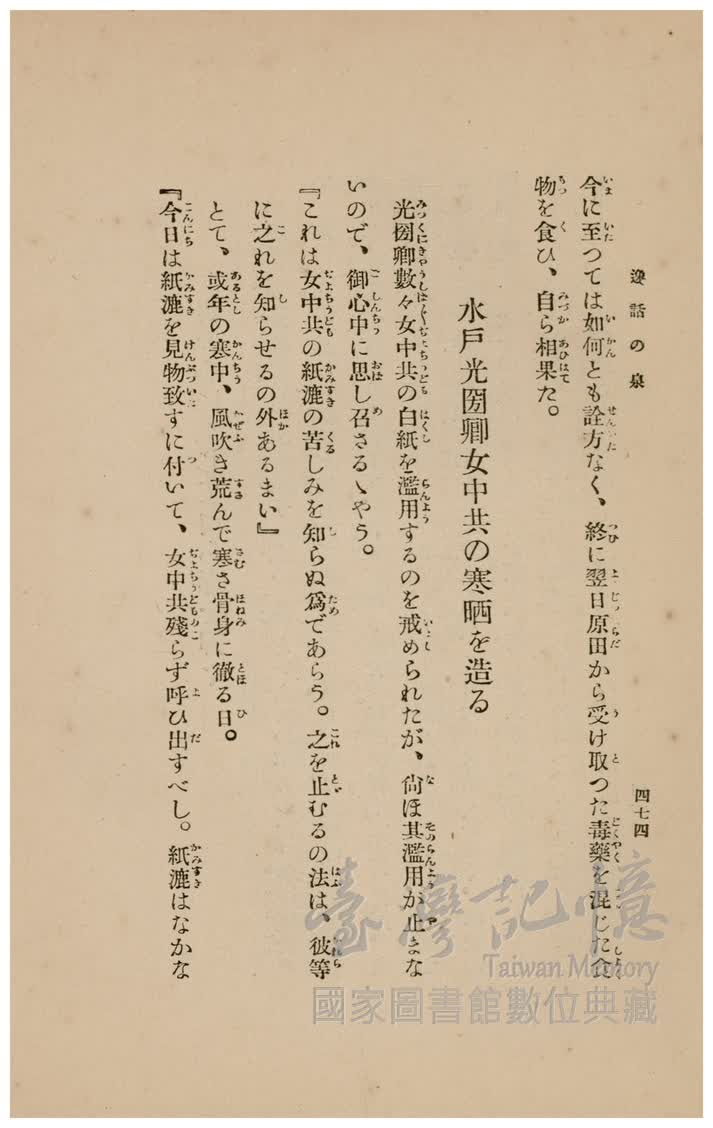 逸話の泉
四七四
今に至つては如何とも詮方なく、終に翌日原田から受け取つた毒藥を混じた食
物を食ひ、自ら相果た。
水戸光圀卿女中共の寒晒を造る
光圀卿數々女中共の白紙を濫用するのを戒められたが、尙ほ其濫用が止まな
いので、御心中に思し召さるゝやう。
『これは女中共の紙漉の苦しみを知らぬ爲であらう。之を止むるの法は、彼等
に之れを知らせるの外あるまい』
とて、或年の寒中、風吹き荒んで寒さ骨身に徹る日。
『今日は紙漉を見物致すに付いて、女中共殘らず呼ひ出すべし。紙漉はなかな
臺灣記憶
Taiwan Memory
國家圖書館數位典藏